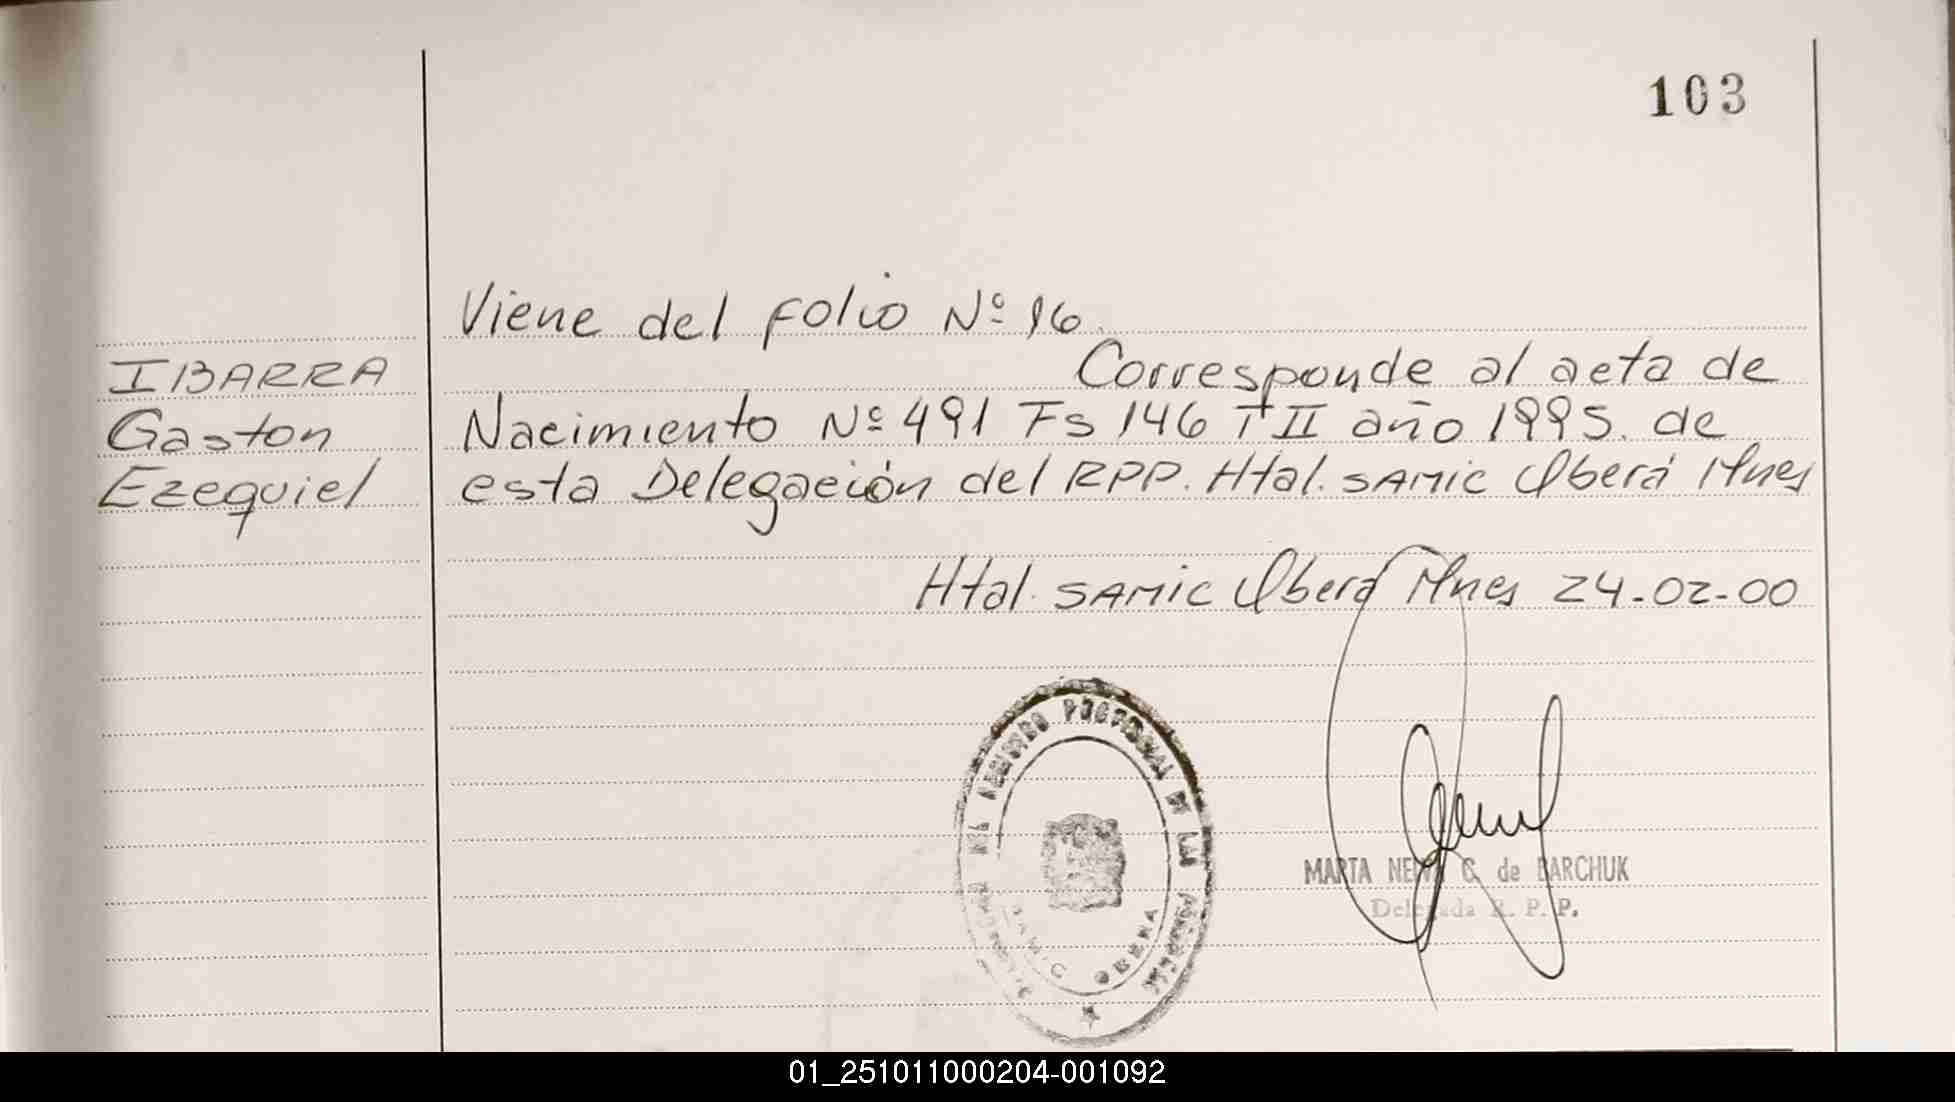 103
Viene del folio Nº 16.
IBARRA
Gaston
Ezequiel
Corresponde al acta de
Nacimiento Nº 491 Fs 146 T II año 1995. de
esta Delegación del RPP. Htal. SAMIC Oberá Mnes
Htal. SAMIC Oberá Mnes 24-02-00
DEL REGISTRO PROVINCIAL DE LAS PERSONAS
SAMIC OBERA
MARTA NELLY C. de BARCHUK
Delegada R. P. P.
01_251011000204-001092